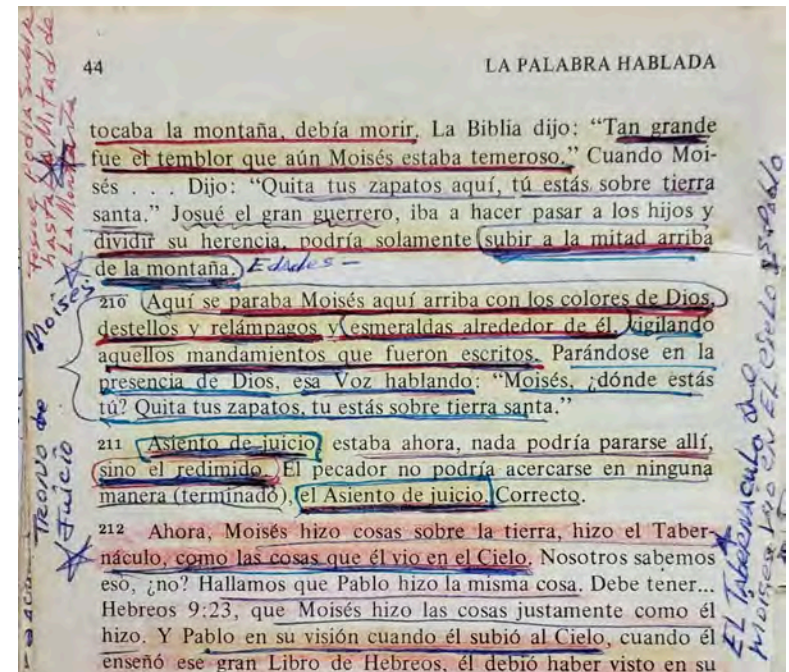 44 LA PALABRA HABLADA
tocaba la montaña, debía morir. La Biblia dijo: “Tan grande
fue el temblor que aún Moisés estaba temeroso.” Cuando Moi-
sés . . . Dijo: “Quita tus zapatos aquí, tú estás sobre tierra
santa.” Josué el gran guerrero, iba a hacer pasar a los hijos y
dividir su herencia, podría solamente subir a la mitad arriba
de la montaña. Edades -
210 Aquí se paraba Moisés aquí arriba con los colores de Dios,
destellos y relámpagos y esmeraldas alrededor de él, vigilando
aquellos mandamientos que fueron escritos. Parándose en la
presencia de Dios, esa Voz hablando: “Moisés, ¿dónde estás
tú? Quita tus zapatos, tu estás sobre tierra santa.”
211 Asiento de juicio estaba ahora, nada podría pararse allí,
sino el redimido. El pecador no podría acercarse en ninguna
manera (terminado), el Asiento de juicio. Correcto.
212 Ahora, Moisés hizo cosas sobre la tierra, hizo el Taber-
náculo, como las cosas que él vio en el Cielo. Nosotros sabemos
eso, ¿no? Hallamos que Pablo hizo la misma cosa. Debe tener...
Hebreos 9:23, que Moisés hizo las cosas justamente como él
hizo. Y Pablo en su visión cuando él subió al Cielo, cuando él
enseñó ese gran Libro de Hebreos, él debió haber visto en su
Josue Podia Subir
hasta La Mitad de
La Montaña
Trono de Moisés
Juicio
El Tabernaculo que
Moises vio en El Cielo Pablo